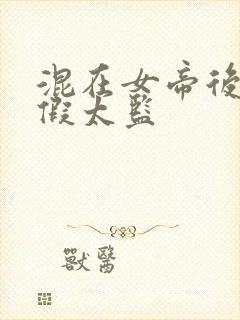 混在女帝後
假太監
獸醫